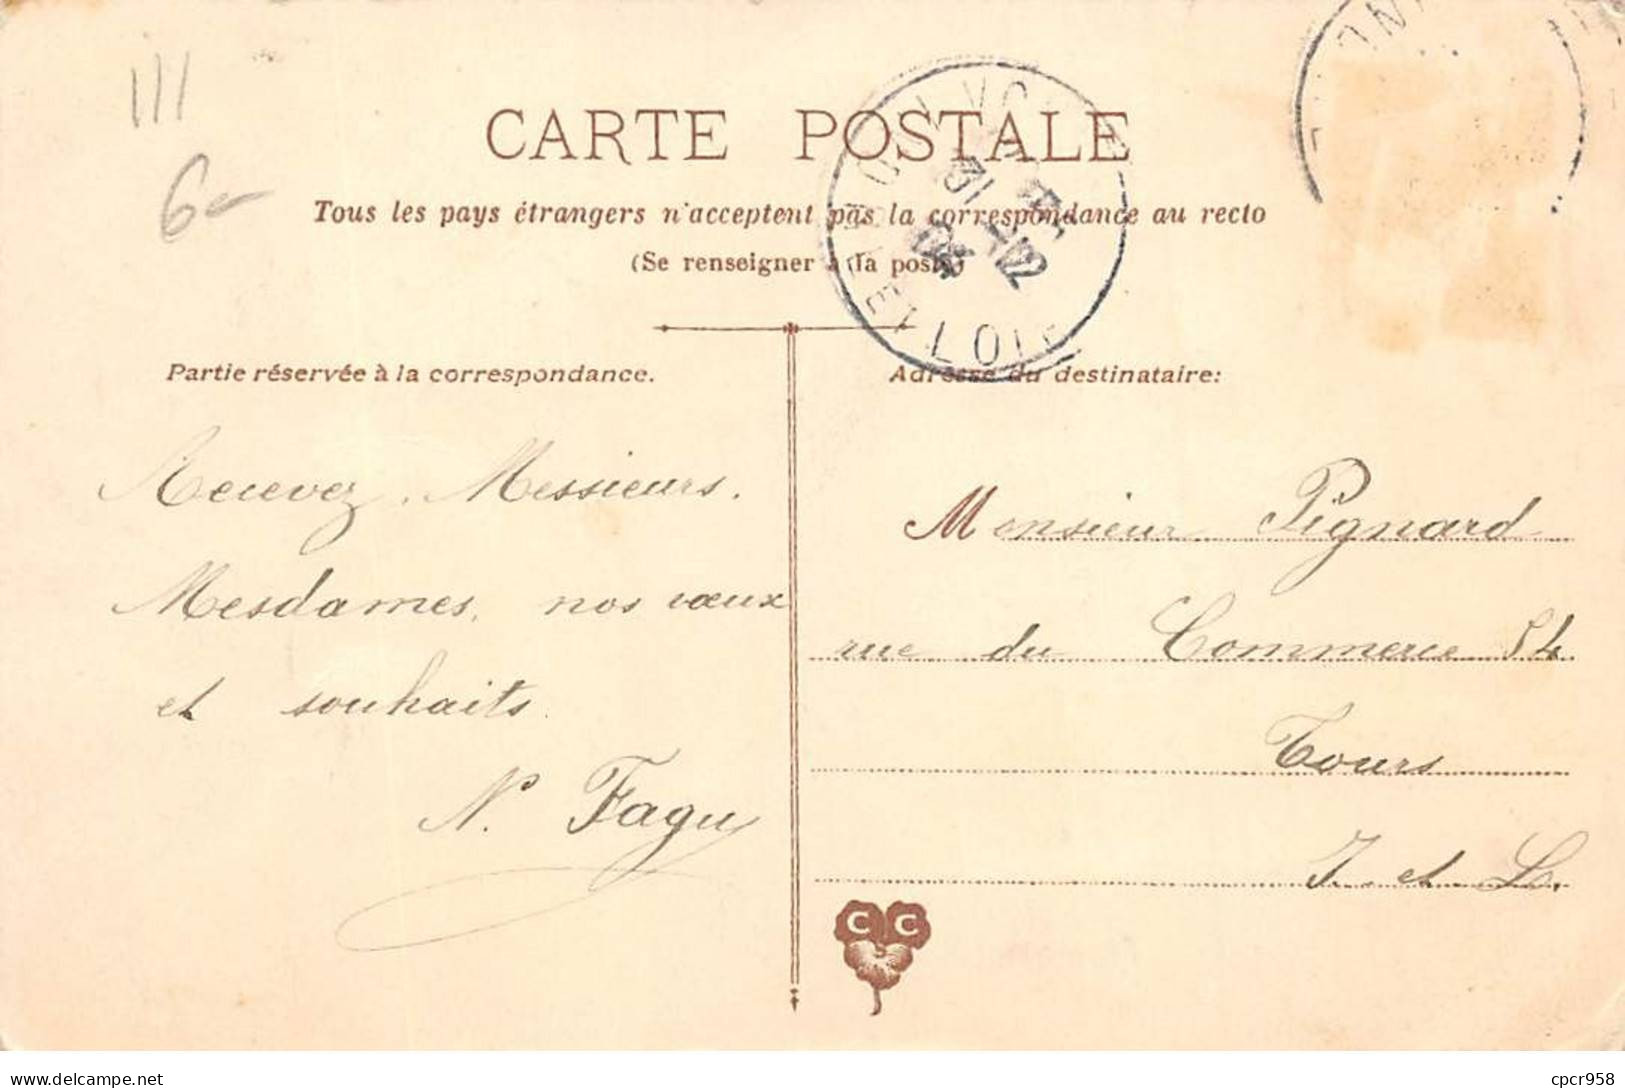 111
6-
CARTE POSTALE
Tous les pays étrangers n'acceptent pas la correspondance au recto
(Se renseigner à la poste)
Partie réservée à la correspondance.
Adresse du destinataire:
Recevez, Messieurs,
Mesdames, nos vœux
et souhaits.
N. Faguy
Monsieur Pignard
rue du Commerce 54
Tours
I. et L.
C C
Delcampe.net
cpcr958